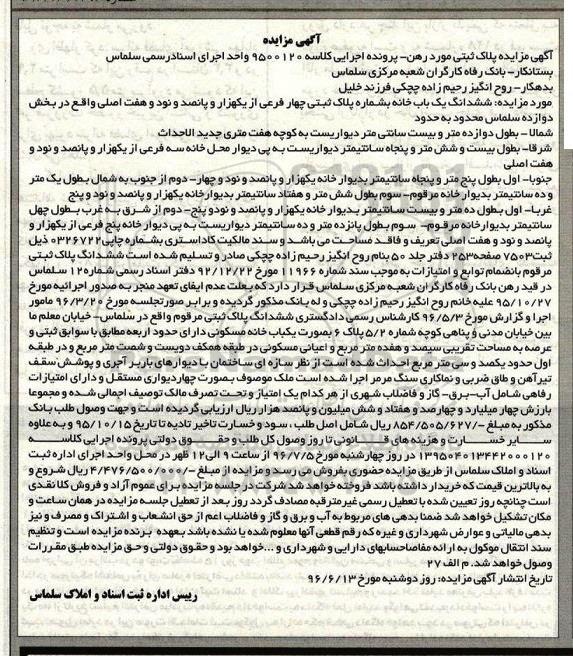 آگهی مزایده
آگهی مزایده پلاک ثبتی مورد رهن- پرونده اجرایی کلاسه ۹۵۰۰۱۲۰ واحد اجرای اسنادرسمی سلماس
بستانکار- بانک رفاه کارگران شعبه مرکزی سلماس
بدهکار- روح انگیز رحیم زاده چچکی فرزند خلیل
مورد مزایده: ششدانگ یک باب خانه بشماره پلاک ثبتی چهار فرعی از یکهزار و پانصد و نود و هفت اصلی واقع در بخش
دوازده سلماس محدود به حدود
شمالا - بطول دوازده متر و بیست سانتی متر دیواریست به کوچه هفت متری جدید الاحداث
شرقا- بطول بیست و شش متر و پنجاه سانتیمتر دیواریست به پی دیوار محل خانه سه فرعی از یکهزار و پانصد و نود و
هفت اصلی
جنوبا- اول بطول پنج متر و پنجاه سانتیمتر بدیوار خانه یکهزار و پانصد و نود و چهار- دوم از جنوب به شمال بطول یک متر
و ده سانتیمتر بدیوار خانه مرقوم- سوم بطول شش متر و هفتاد سانتیمتر بدیوارخانه یکهزار و پانصد و نود و پنج
غربا- اول بطول ده متر و بیست سانتیمتر بدیوار خانه یکهزار و پانصد و نودو پنج- دوم از شرق به غرب بطول چهل
سانتیمتر بدیوارخانه مرقوم- سوم بطول پانزده متر و ده سانتیمتر دیواریست به پی دیوار خانه پنج فرعی از یکهزار و
پانصد و نود و هفت اصلی تعریف و فاقد مساحت می باشد و سند مالکیت کاداستری بشماره چاپی ۰۳۲۶۷۲۲ ذیل
ثبت ۷۵۰۳ صفحه ۲۵۳ دفتر جلد ۵۰ بنام روح انگیز رحیم زاده چچکی صادر و تسلیم شده است ششدانگ پلاک ثبتی
مرقوم بانضمام توابع و امتیازات به موجب سند شماره ۱۱۹۶۶ مورخ ۹۲/۱۲/۲۲ دفتر اسناد رسمی شماره ۱۲ سلماس
در قید رهن بانک رفاه کارگران شعبه مرکزی سلماس قرار دارد که بعلت عدم ایفای تعهد منجر به صدور اجرائیه مورخ
۹۵/۱۰/۲۷ علیه خانم روح انگیز رحیم زاده چچکی و له بانک مذکور گردیده و برابر صورتجلسه مورخ ۹۶/۳/۲۰ مامور
اجرا و گزارش مورخ ۹۶/۵/۳ کارشناس رسمی دادگستری ششدانگ پلاک ثبتی مرقوم واقع در سلماس- خیابان معلم ما
بین خیابان مدنی و پناهی کوچه شماره ۵/۲ پلاک ۶ بصورت یکباب خانه مسکونی دارای حدود اربعه مطابق با سوابق ثبتی و
عرصه به مساحت تقریبی سیصد و هفده متر مربع و اعیانی مسکونی در طبقه همکف دویست و شصت متر مربع و در طبقه
اول حدود یکصد و سی متر مربع احداث شده است از نظر سازه ای ساختمان با دیوارهای باربر آجری و پوشش سقف
تیرآهن و طاق ضربی و نماکاری سنگ مرمر اجرا شده است ملک موصوف بصورت چهاردیواری مستقل و دارای امتیازات
رفاهی شامل آب- برق- گاز و فاضلاب شهری از هر کدام یک امتیاز و تحت تصرف مالک توصیف اجمالی شده و مجموعا
بارزش چهار میلیارد و چهار صد و هفتاد و شش میلیون و پانصد هزار ریال ارزیابی گردیده است و جهت وصول طلب بانک
مذکور به مبلغ -/۸۵۴/۵۰۵/۶۲۷ ریال شامل اصل طلب ، سود و خسارت تاخیر تادیه تا تاریخ ۹۵/۱۰/۱۵ و به علاوه
سایر خسارت و هزینه های قانونی تا روز وصول کل طلب و حقوق دولتی پرونده اجرایی کلاسه
۱۳۹۵۰۴۰۱۳۴۴۲۰۰۰۱۲۰ در روز چهارشنبه مورخ ۹۶/۷/۵ از ساعت ۹ الی ۱۲ ظهر در محل واحد اجرای اداره ثبت
اسناد و املاک سلماس از طریق مزایده حضوری بفروش می رسد و مزایده از مبلغ -/۴/۴۷۶/۵۰۰/۰۰۰ ریال شروع و
به بالاترین قیمت که خریدار داشته باشد فروخته خواهد شد شرکت در جلسه مزایده برای عموم آزاد و فروش کلا نقدی
است چنانچه روز تعیین شده با تعطیل رسمی غیرمترقبه مصادف گردد روز بعد از تعطیل جلسه مزایده در همان ساعت و
مکان تشکیل خواهد شد ضمنا بدهی های مربوط به آب و برق و گاز و فاضلاب اعم از حق انشعاب و اشتراک و مصرف و نیز
بدهی مالیاتی و عوارض شهرداری و غیره که رقم قطعی آنها معلوم شده یا نشده باشد بعهده برنده مزایده است و تنظیم
سند انتقال موکول به ارائه مفاصاحسابهای دارایی و شهرداری و ...خواهد بود و حقوق دولتی و حق مزایده طبق مقررات
وصول خواهد شد. م الف ۲۷
تاریخ انتشار آگهی مزایده: روز دوشنبه مورخ ۹۶/۶/۱۳
رییس اداره ثبت اسناد و املاک سلماس